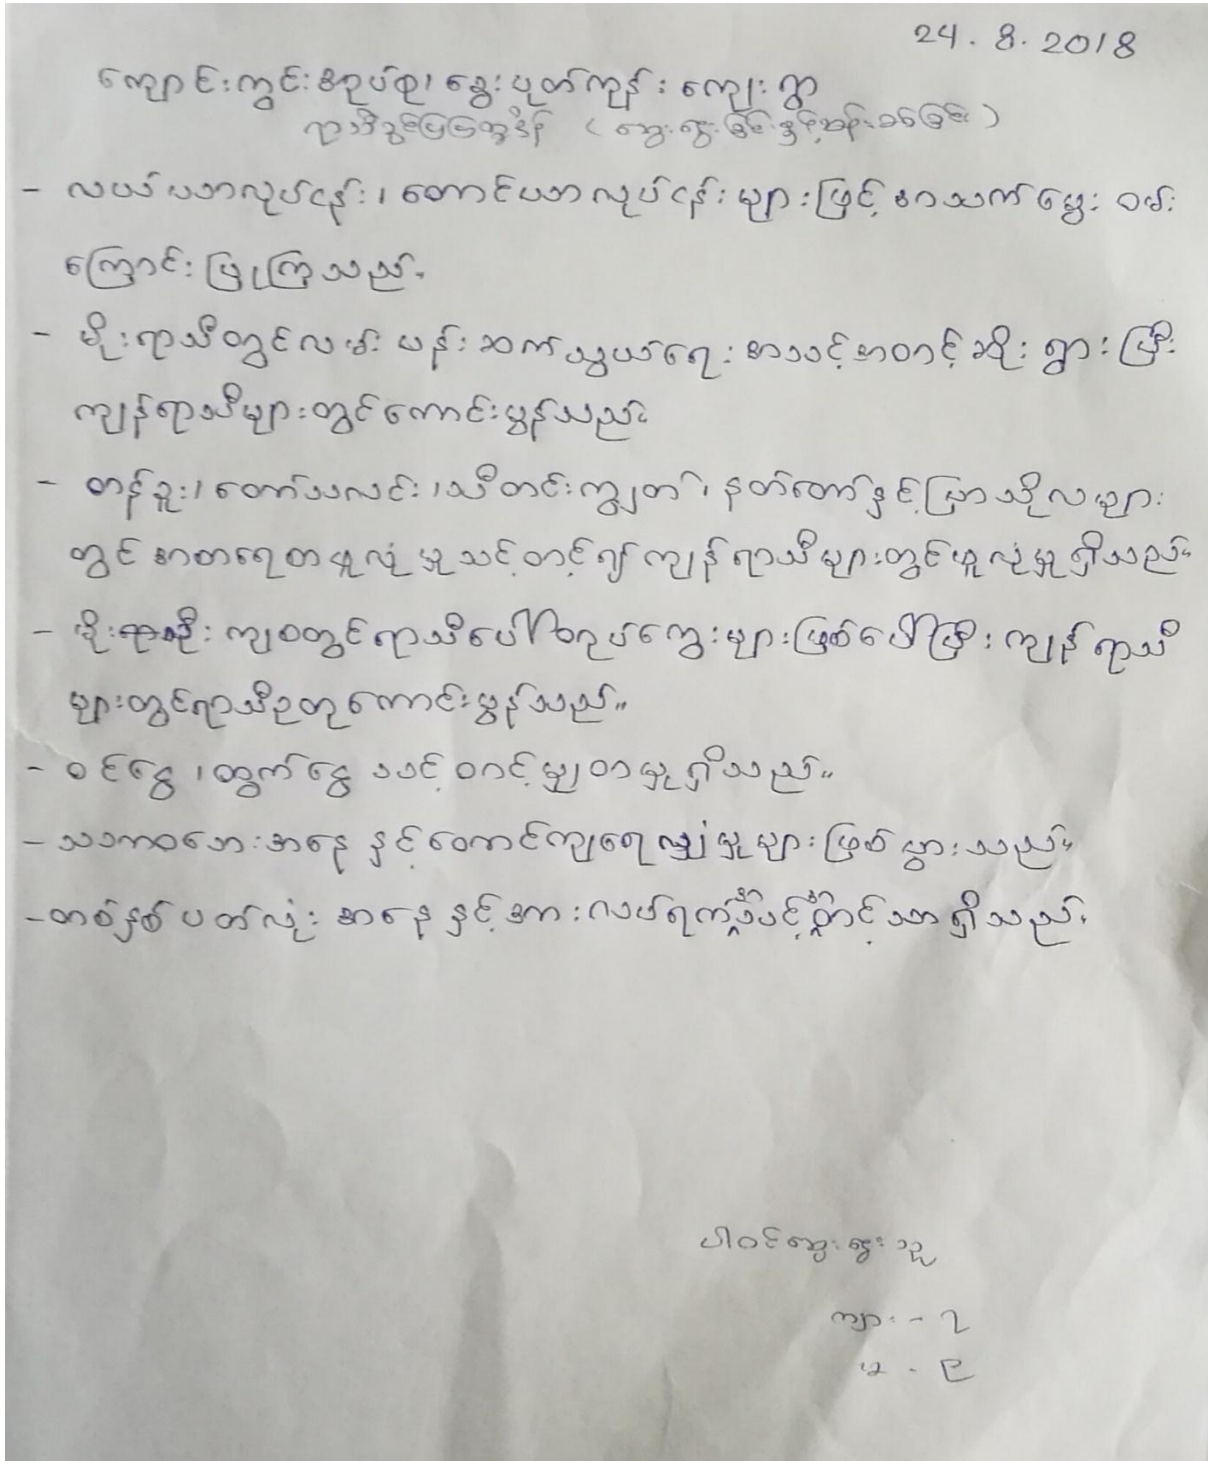 24.8.2018
ကျောင်းကွင်းအုပ်စု၊ ခွေးပုတ်ကုန်း ကျေးရွာ
ရာသီခွင်ပြမြေပုံ (ဆွေးနွေးခြင်းနှင့်ဆန်းစစ်ခြင်း)
- လယ်ယာလုပ်ငန်း၊ တောင်ယာလုပ်ငန်းများဖြင့် အသက်မွေး ဝမ်း
ကြောင်း ပြုကြသည်။
- မိုးရာသီတွင်လမ်း ပန်းဆက်သွယ်ရေး အသင့်အတင့်ဆိုး ရွားပြီး
ကျန်ရာသီများတွင်ကောင်းမွန်သည်။
- တန်ခူး၊ တော်သလင်း၊ သီတင်းကျွတ်၊ နတ်တော်နှင့်ပြာသိုလများ
တွင် အစားရေစာဖူလုံမှုသင့်တင့်၍ ကျန်ရာသီများတွင်ဖူလုံမှုရှိသည်။
- မိုးဦးကျစတွင်ရာသီပေါ်တုပ်ကွေးများဖြစ်ပေါ်ပြီး ကျန်ရာသီ
များတွင်ရာသီဥတုကောင်းမွန်သည်။
- ဝင်ငွေ၊ ထွက်ငွေ သင့်တင့်မျှတမှုရှိသည်။
- သဘာဝဘေးအနေ နှင့်တောင်ကျရေလျှံမှုများဖြစ်ပွားသည်။
- တစ်နှစ်ပတ်လုံး အနေနှင့်အားလပ်ရက်သင့်တင့်သာရှိသည်။
ပါဝင်ဆွေးနွေးသူ
ကျား - ၇
မ - ၉